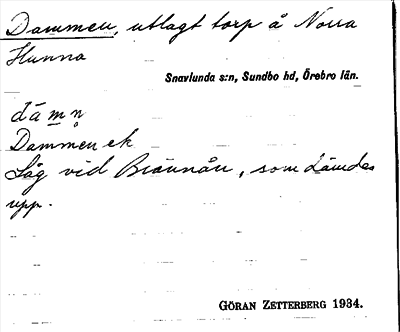 Dammen, utlagt torp å Norra
Hunna
Snavlunda s:n, Sundbo hd, Örebro län.
dä m n̥
Dammen ek
Låg vid Brännån, som dämdes
upp.
GÖRAN ZETTERBERG 1934.